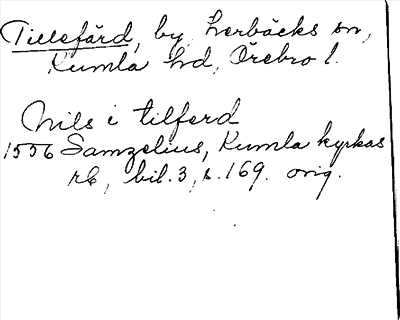 Tillefärd, by, Lerbäcks sn,
Kumla hd, Örebro l.
Nils i tilferd
1556 Samzelius, Kumla kyrkas
rb, bil. 3, s. 169. orig.